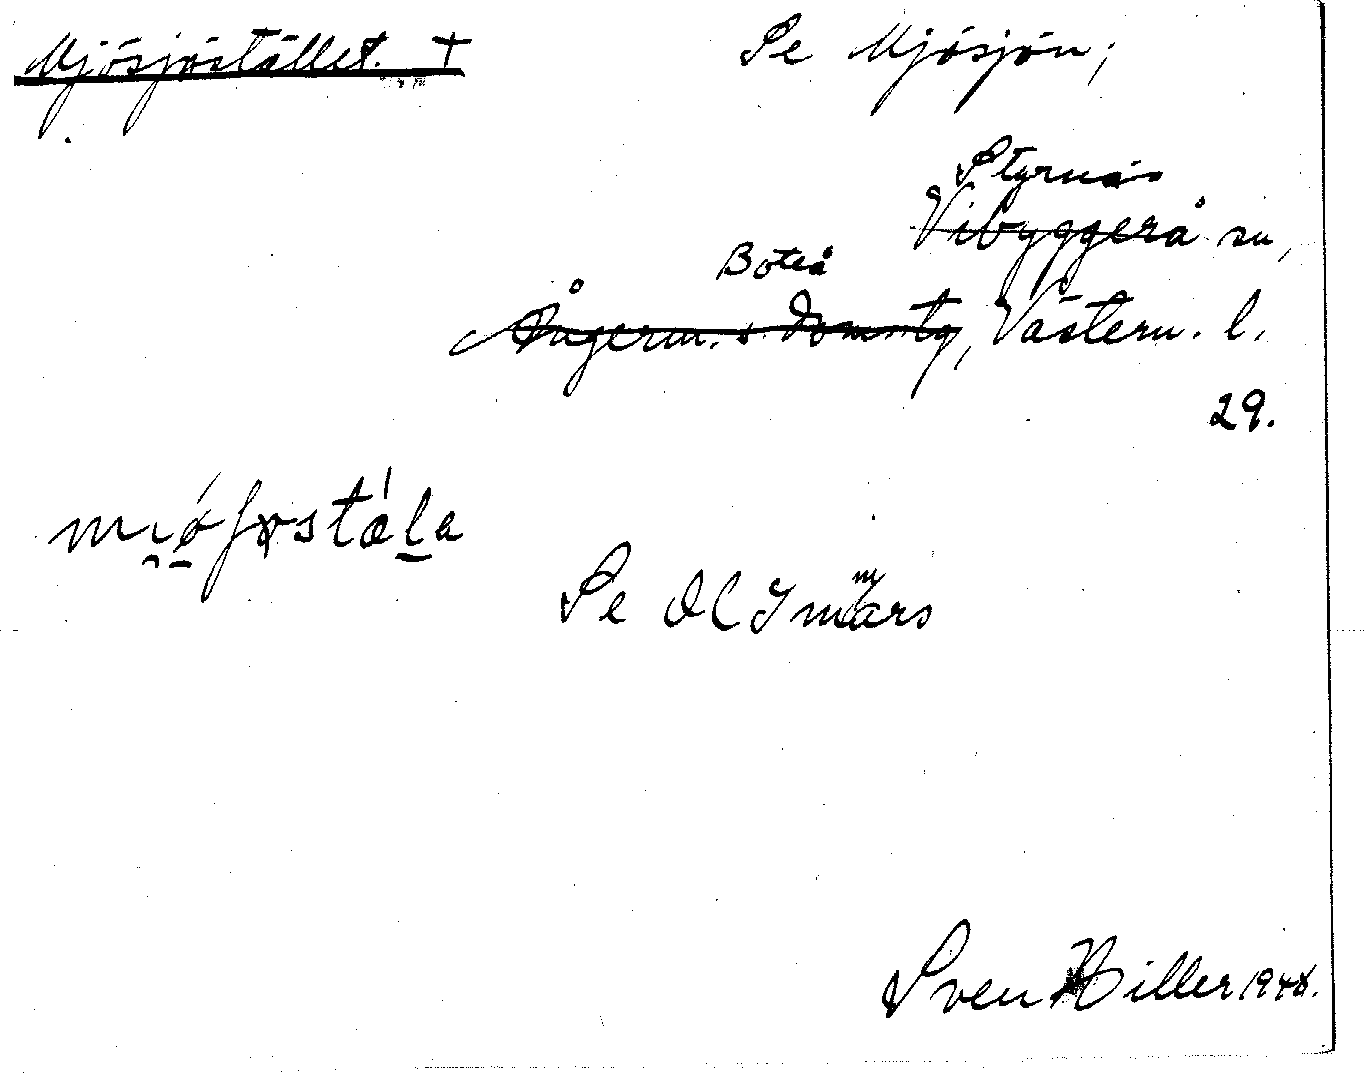 Mjösjöstället. † Se Mjösjön;
Styrnäs
Vibyggerå sn,
Boteå
Ångerm. s. domstg, Västern. l.
29.
Se
Sven Hiller 1948.